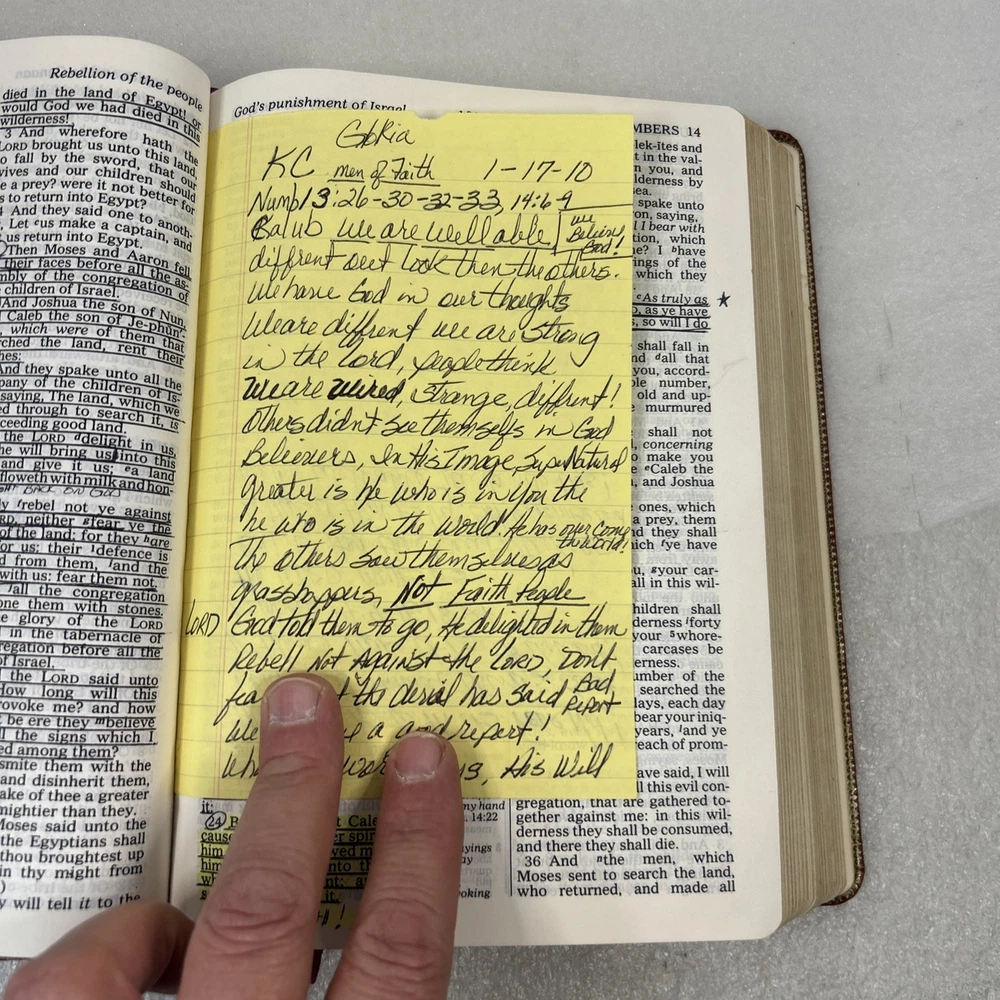 Rebellion of the people
died in the land of Egypt! or
would God we had died in this
wilderness!
3 And wherefore hath the
LORD brought us unto this land,
to fall by the sword, that our
wives and our children should
be a prey? were it not better for
us to return into Egypt?
4 And they said one to anoth-
Let us make a captain, and
us return into Egypt.
Then Moses and Aaron fell
their faces before all the as-
mbly of the congregation of
children of Israel.
And Joshua the son of Nun,
Caleb the son of Je-phun
which were of them that
rched the land, rent their
hes:
And they spake unto all the
pany of the children of Is-
saying, The land, which we
ed through to search it, is
ceeding good land.
the LORD delight in us,
he will bring us into this
and give it us; a land
floweth with milk and hon-
BACK ON GOD
rebel not ye against
neither fear ye the
of the land; for they are
for us: their defence is
d from them, and the
with us: fear them not.
all the congregation
one them with stones.
e glory of the LORD
in the tabernacle of
regation before all the
of Israel.
the LORD said unto
How long will this
rovoke me? and how
be ere they believe
ll the signs which I
ed among them?
smite them with the
and disinherit them,
ake of thee a greater
mightier than they.
Moses said unto the
the Egyptians shall
thou broughtest up
in thy might from
will tell it to the
God's punishment of Israel
MBERS 14
Gloria
KC men of Faith 1-17-10
Numb 13:26-30-32-33, 14:6-9
Calub we are well able we Believe God!
diffrent out look then the others.
We have God in our thoughts
We are diffrent we are strong
in the Lord, people think
we are wired, strange, diffrent!
Others didn't see themselfs in God
Believers, In His Image, Super Natural
greater is He who is in you the
he who is in the world. He has over come the world!
The others saw themselves as
grasshoppers, Not Faith People
LORD God told them to go, He delighted in them
Rebell Not Against the LORD, Dont
the has said Bad Report
We a good report!
His Will
lek-ites and
t in the val-
n you, and
lderness by
sea.
spake unto
ron, saying,
I bear with
tion, which
me? I have
ings of the
which they
As truly as
, as ye have
s, so will I do
shall fall in
nd all that
you, accord-
ole number,
old and up-
e murmured
shall not
concerning
o make you
e Caleb the
h, and Joshua
ones, which
a prey, them
nd they shall
ich ye have
u, your car-
all in this wil-
hildren shall
lderness forty
your whore-
carcases be
erness.
umber of the
searched the
days, each day
bear your iniq-
years, and ye
each of prom-
ave said, I will
ll this evil con-
gregation, that are gathered to-
gether against me: in this wil-
derness they shall be consumed,
and there they shall die.
36 And the men, which
Moses sent to search the land,
who returned, and made all
it:
24 Cale
cause er spir
him
him nto th
it.
my hand
14:22